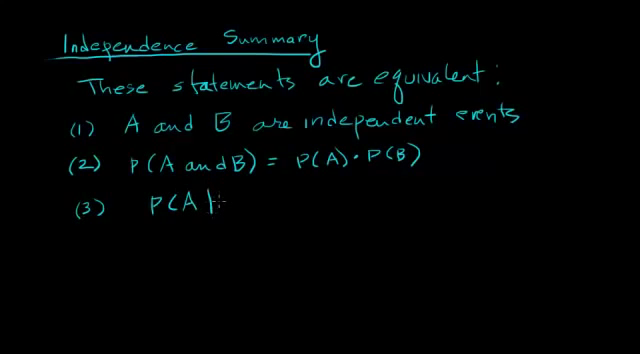 Independence Summary
These statements are equivalent:
(1) A and B are independent events
(2) P(A and B) = P(A) · P(B)
(3) P(A |